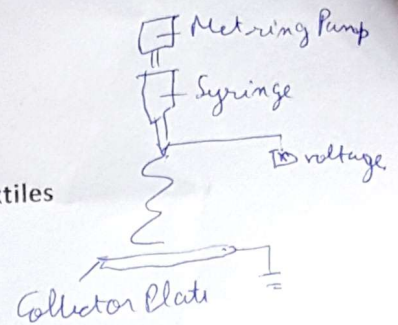 Metring Pump
Syringe
voltage
tiles
Collector Plate